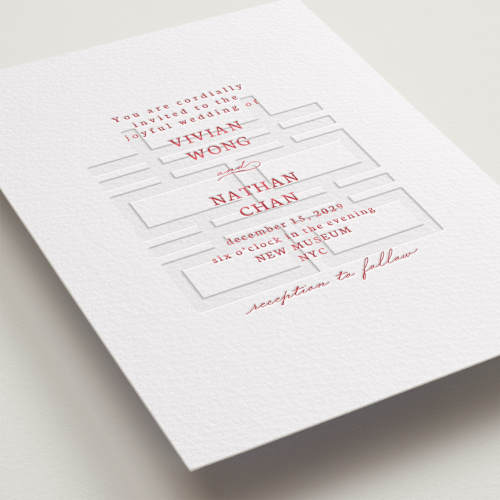 You are cordially
invited to the
joyful wedding of
VIVIAN
WONG
and
NATHAN
CHAN
december 15, 2029
six o'clock in the evening
NEW MUSEUM
NYC
reception to follow